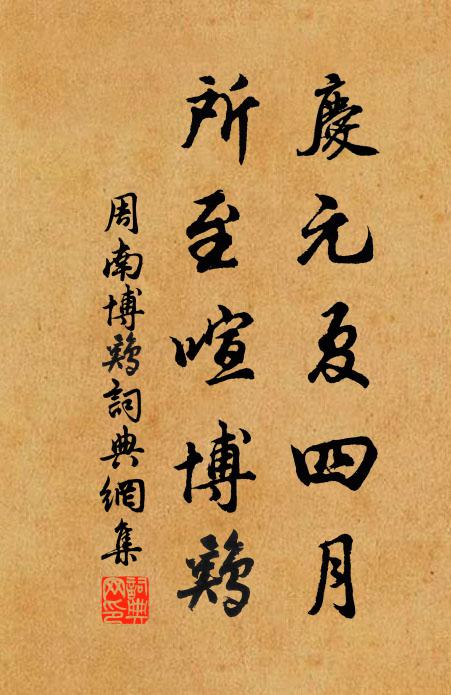 慶元夏四月
所至喧博鷄
周南博鷄詞典網集
詞典
网印